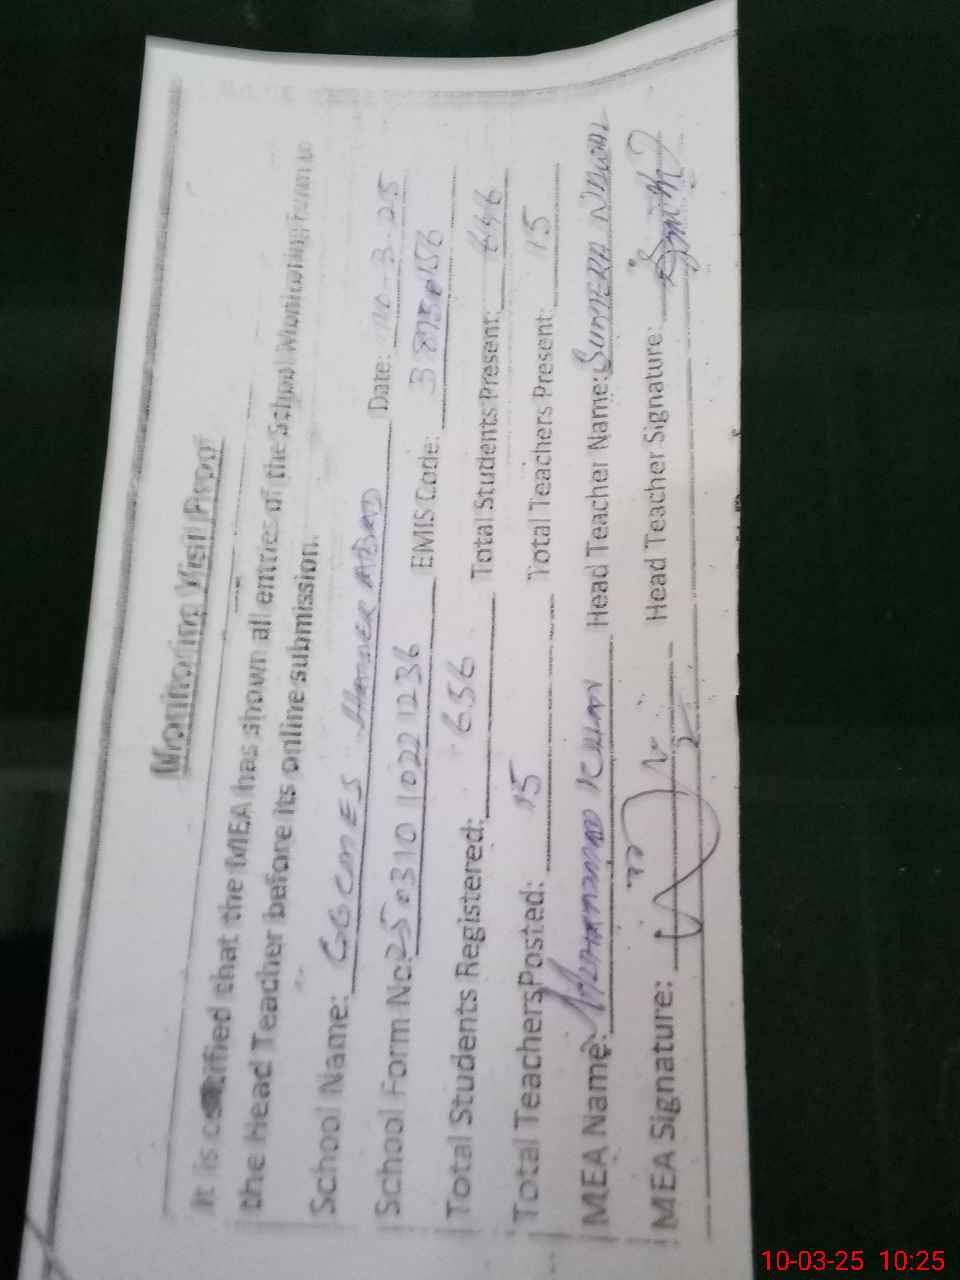 Monitoring Visit Proof
It is certified that the MEA has shown all entries of the School Monitoring Form to
the Head Teacher before its online submission.
School Name: GGCMES HAIDER ABAD Date: 10-3-25
School Form No: 250310 1022 1236 EMIS Code:
Total Students Registered: 656 Total Students Present: 646
Total Teachers Posted: 15 Total Teachers Present: 15
MEA Name: MUHAMMAD KHAN Head Teacher Name: SUMERA NAWAL
MEA Signature: Head Teacher Signature:
10-03-25 10:25